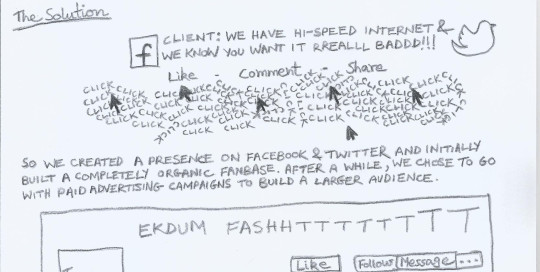 The Solution
f CLIENT: WE HAVE HI-SPEED INTERNET &
WE KNOW YOU WANT IT RREALLL BADDD!!!
Like - Comment - Share
CLICK CLICK CLICK CLICK CLICK CLICK CLICK
CLICK CLICK CLICK CLICK CLICK CLICK CLICK
CLICK CLICK CLICK CLICK CLICK CLICK CLICK
CLICK CLICK CLICK CLICK CLICK CLICK
CLICK CLICK CLICK CLICK
SO WE CREATED A PRESENCE ON FACEBOOK & TWITTER AND INITIALLY
BUILT A COMPLETELY ORGANIC FANBASE. AFTER A WHILE, WE CHOSE TO GO
WITH PAID ADVERTISING CAMPAIGNS TO BUILD A LARGER AUDIENCE.
EKDUM FASHHTTTTTTTT
Like Follow Message ...